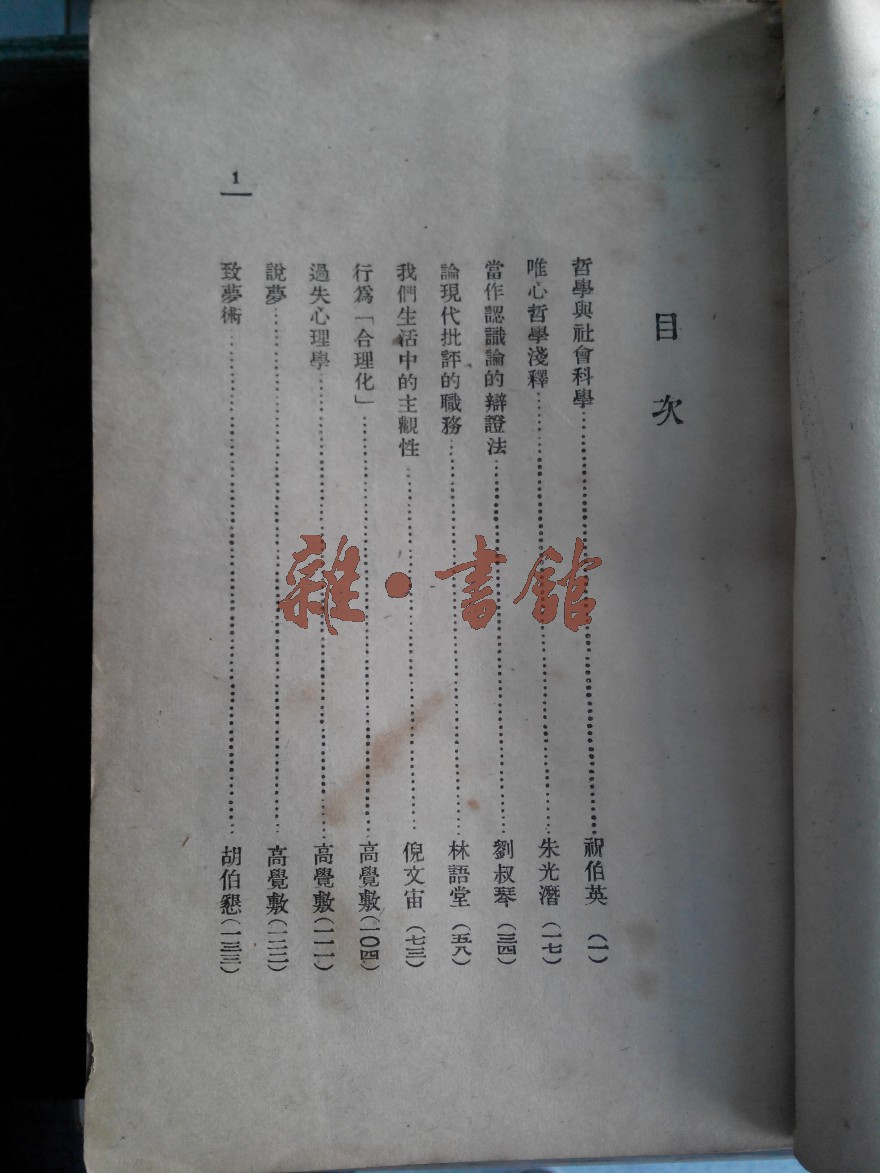 目次
哲學與社會科學……祝伯英(一)
唯心哲學淺釋……朱光潛(一七)
當作認識論的辯證法……劉叔琴(三四)
論現代批評的職務……林語堂(五八)
我們生活中的主觀性……倪文宙(七三)
行爲「合理化」……高覺敷(一〇四)
過失心理學……高覺敷(一一一)
說夢……高覺敷(一二二)
致夢術……胡伯懇(一三三)
1
雜·書館